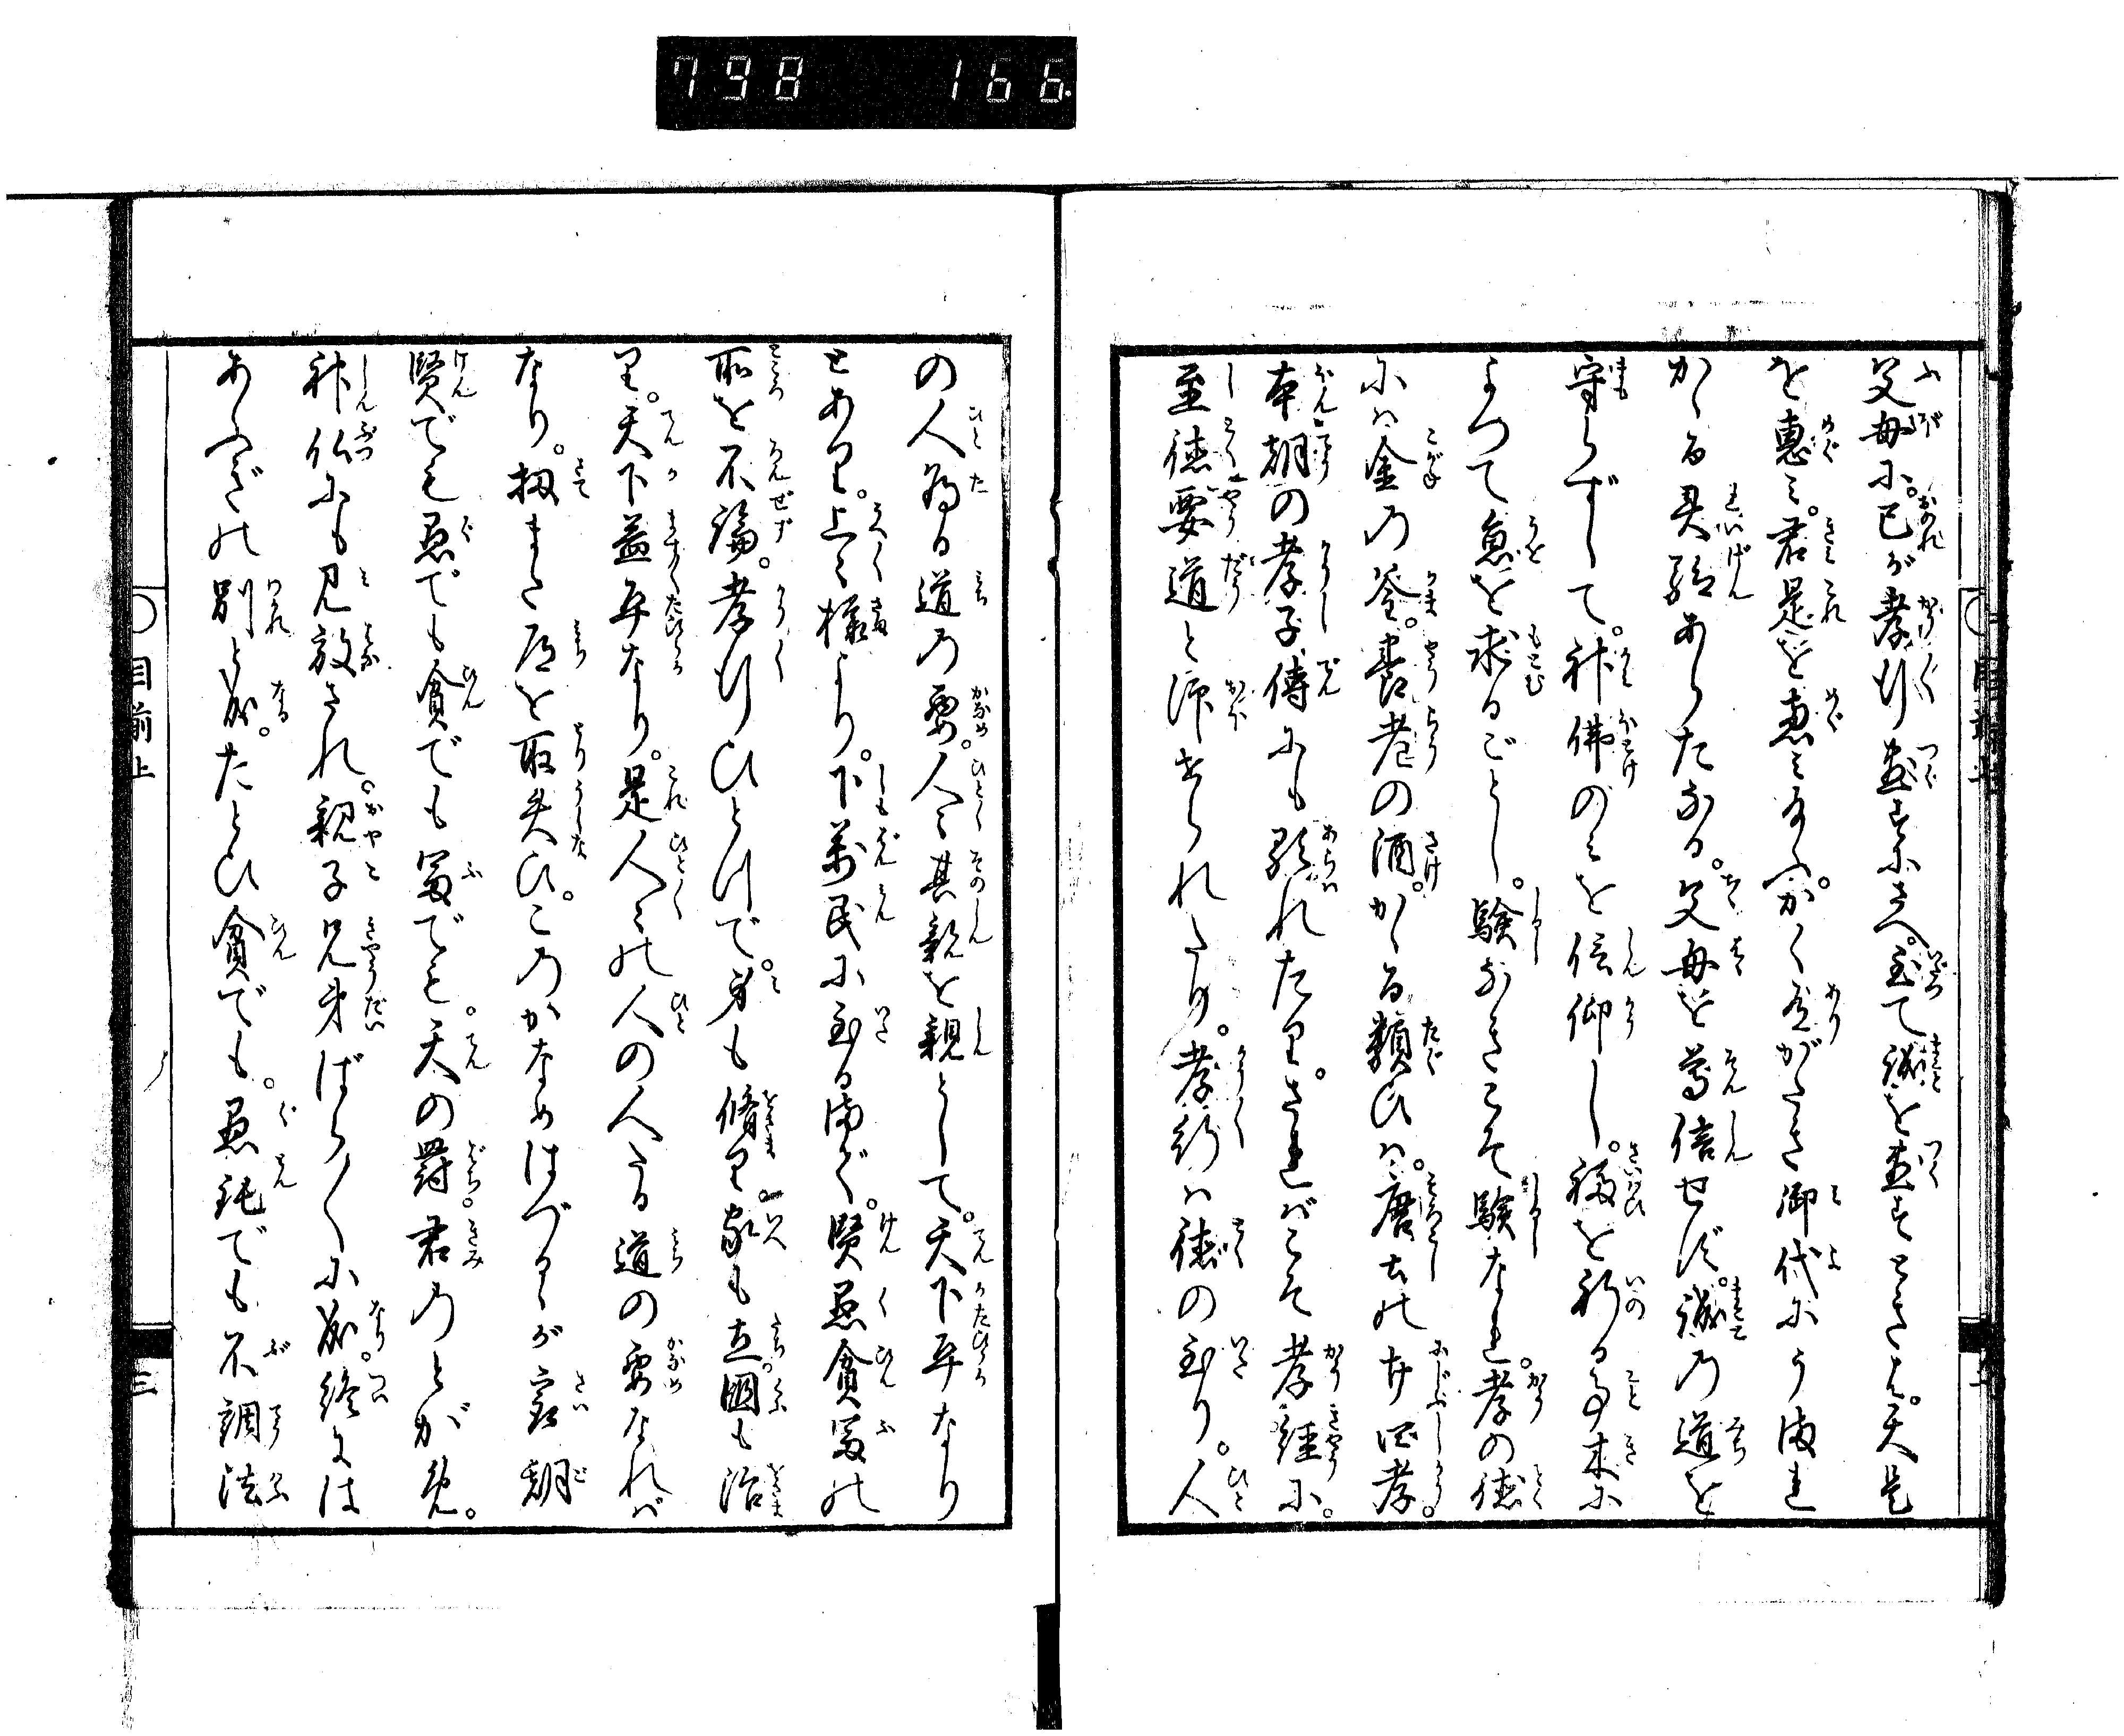 798 166
父母に。己が孝行尽すにさへ。至て誠を尽すときは。天是
を恵み。君是を恵み給ふ。かく有がたき御代にうまれ
かゝる異験あらたなる。父母を尊信せず。誠の道を
守らずして。神佛のみを信仰し。福を祈る事木に
よつて魚を求るごとし。験なきこそ験なれ。孝の徳
には金の釜。養老の酒。かゝる類ひは。唐土の廿四孝。
本朝の孝子傳にも顕れたり。さればこそ孝經に。
至徳要道と演られたり。孝行は徳の至り。人
の人為る道の要。人々其親を親として。天下平なり
とあり。上々様より。下萬民に至るまで。賢愚貧富の
所を不論。孝行ひとつで。身も脩り。家も立。國も治
り。天下益平なり。是人々の人の人たる道の要なれば
なり。扨また道を取失ひ。このかなめはづるゝが最期
賢でも愚でも貧でも富でも。天の罸。君のとがめ。
神仏にも見放され。親子兄弟ばら〳〵に成。終には
あふぎの別と成。たとひ貧でも。愚鈍でも不調法
目前上
三